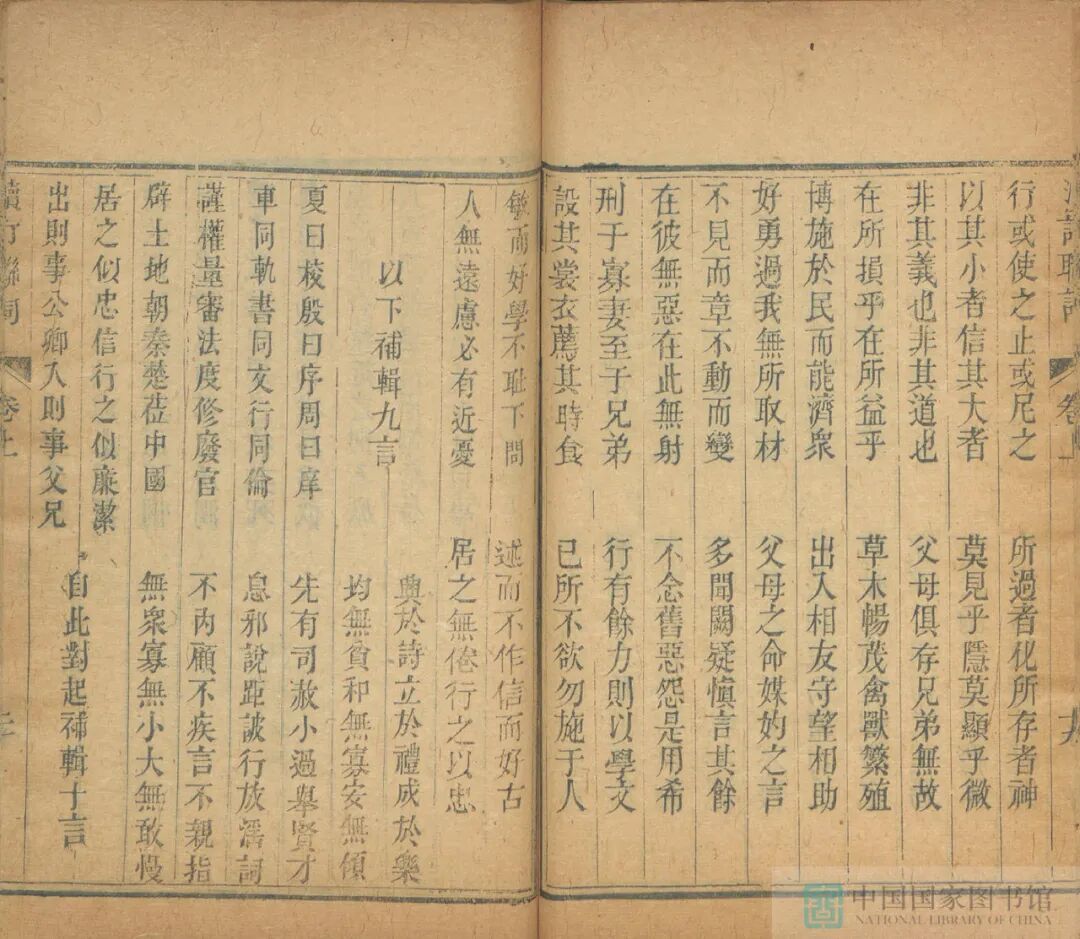 行或使之止或尼之　所過者化所存者神
以其小者信其大者　莫見乎隱莫顯乎微
非其義也非其道也　父母俱存兄弟無故
在所損乎在所益乎　草木暢茂禽獸繁殖
博施於民而能濟衆　出入相友守望相助
好勇過我無所取材　父母之命媒妁之言
不見而章不動而變　多聞闕疑慎言其餘
在彼無惡在此無射　不念舊惡怨是用希
刑于寡妻至于兄弟　行有餘力則以學文
設其裳衣薦其時食　已所不欲勿施于人
敏而好學不恥下問　述而不作信而好古
人無遠慮必有近憂　居之無倦行之以忠
以下補輯九言　興於詩立於禮成於樂
均無貧和無寡安無傾
夏曰校殷曰序周曰庠　先有司赦小過舉賢才
車同軌書同文行同倫　息邪說距詖行放淫詞
謹權量審法度修廢官　不內顧不疾言不親指
辟土地朝秦楚莅中國　無衆寡無小大無敢慢
居之似忠信行之似廉潔　自此對起補輯十言
出則事公卿入則事父兄
卷上
中国国家图书馆
NATIONAL LIBRARY OF CHINA